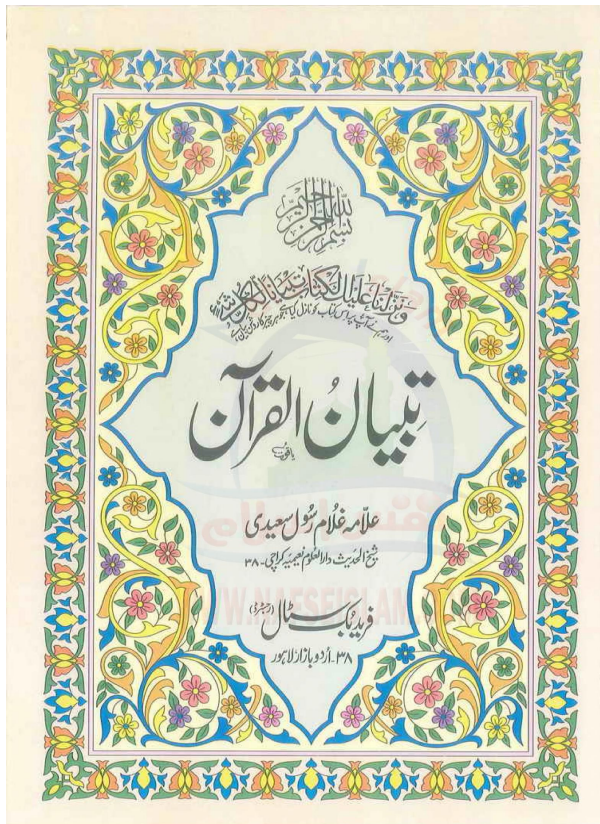 بسم اللہ الرحمن الرحیم
وَنَزَّلْنَا عَلَيْكَ الْكِتَابَ تِبْيَانًا لِّكُلِّ شَيْءٍ
اور ہم نے آپ پر اس کتاب کو نازل کیا ہے جو ہر چیز کا روشن بیان ہے
تبیان القرآن
علامہ غلام رسول سعیدی
شیخ الحدیث دارالعلوم نعیمیہ کراچی-۳۸
فرید بک سٹال (رجسٹرڈ)
۳۸-اردو بازار لاہور
نفس اسلام
WWW.NAFSEISLAM.COM